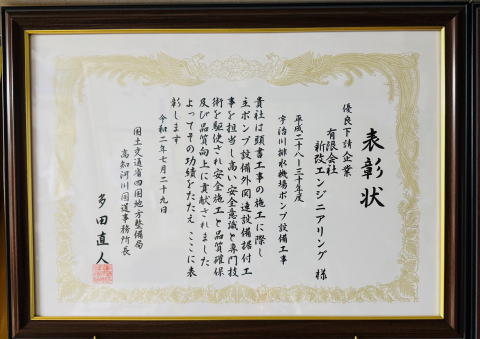 表彰状
優良下請企業
有限会社
新改エンジニアリング 様
平成二十八~三十年度
宇治川排水機場ポンプ設備工事
貴社は頭書工事の施工に際し
主ポンプ設備外関連設備据付工
事を担当し高い安全意識と専門技
術を駆使され安全施工と品質確保
及び品質向上に貢献されました
よってその功績をたたえここに表
彰します
令和二年七月二十九日
国土交通省四国地方整備局
高知河川国道事務所長
多田直人